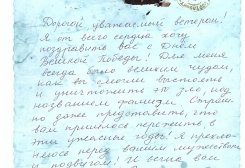 Дорогой, уважаемый ветеран.
Я от всего сердца хочу
поздравить вас с Днём
Великой Победы! Для меня
всегда было великим чудом,
как вы смогли выстоять
и уничтожить то зло, под
названием фашизм. Страш-
но даже представить, что
вам пришлось пережить в
эти ужасные годы! Я прекло-
няюсь перед вашим мужеством
и подвигом! И всегда вам